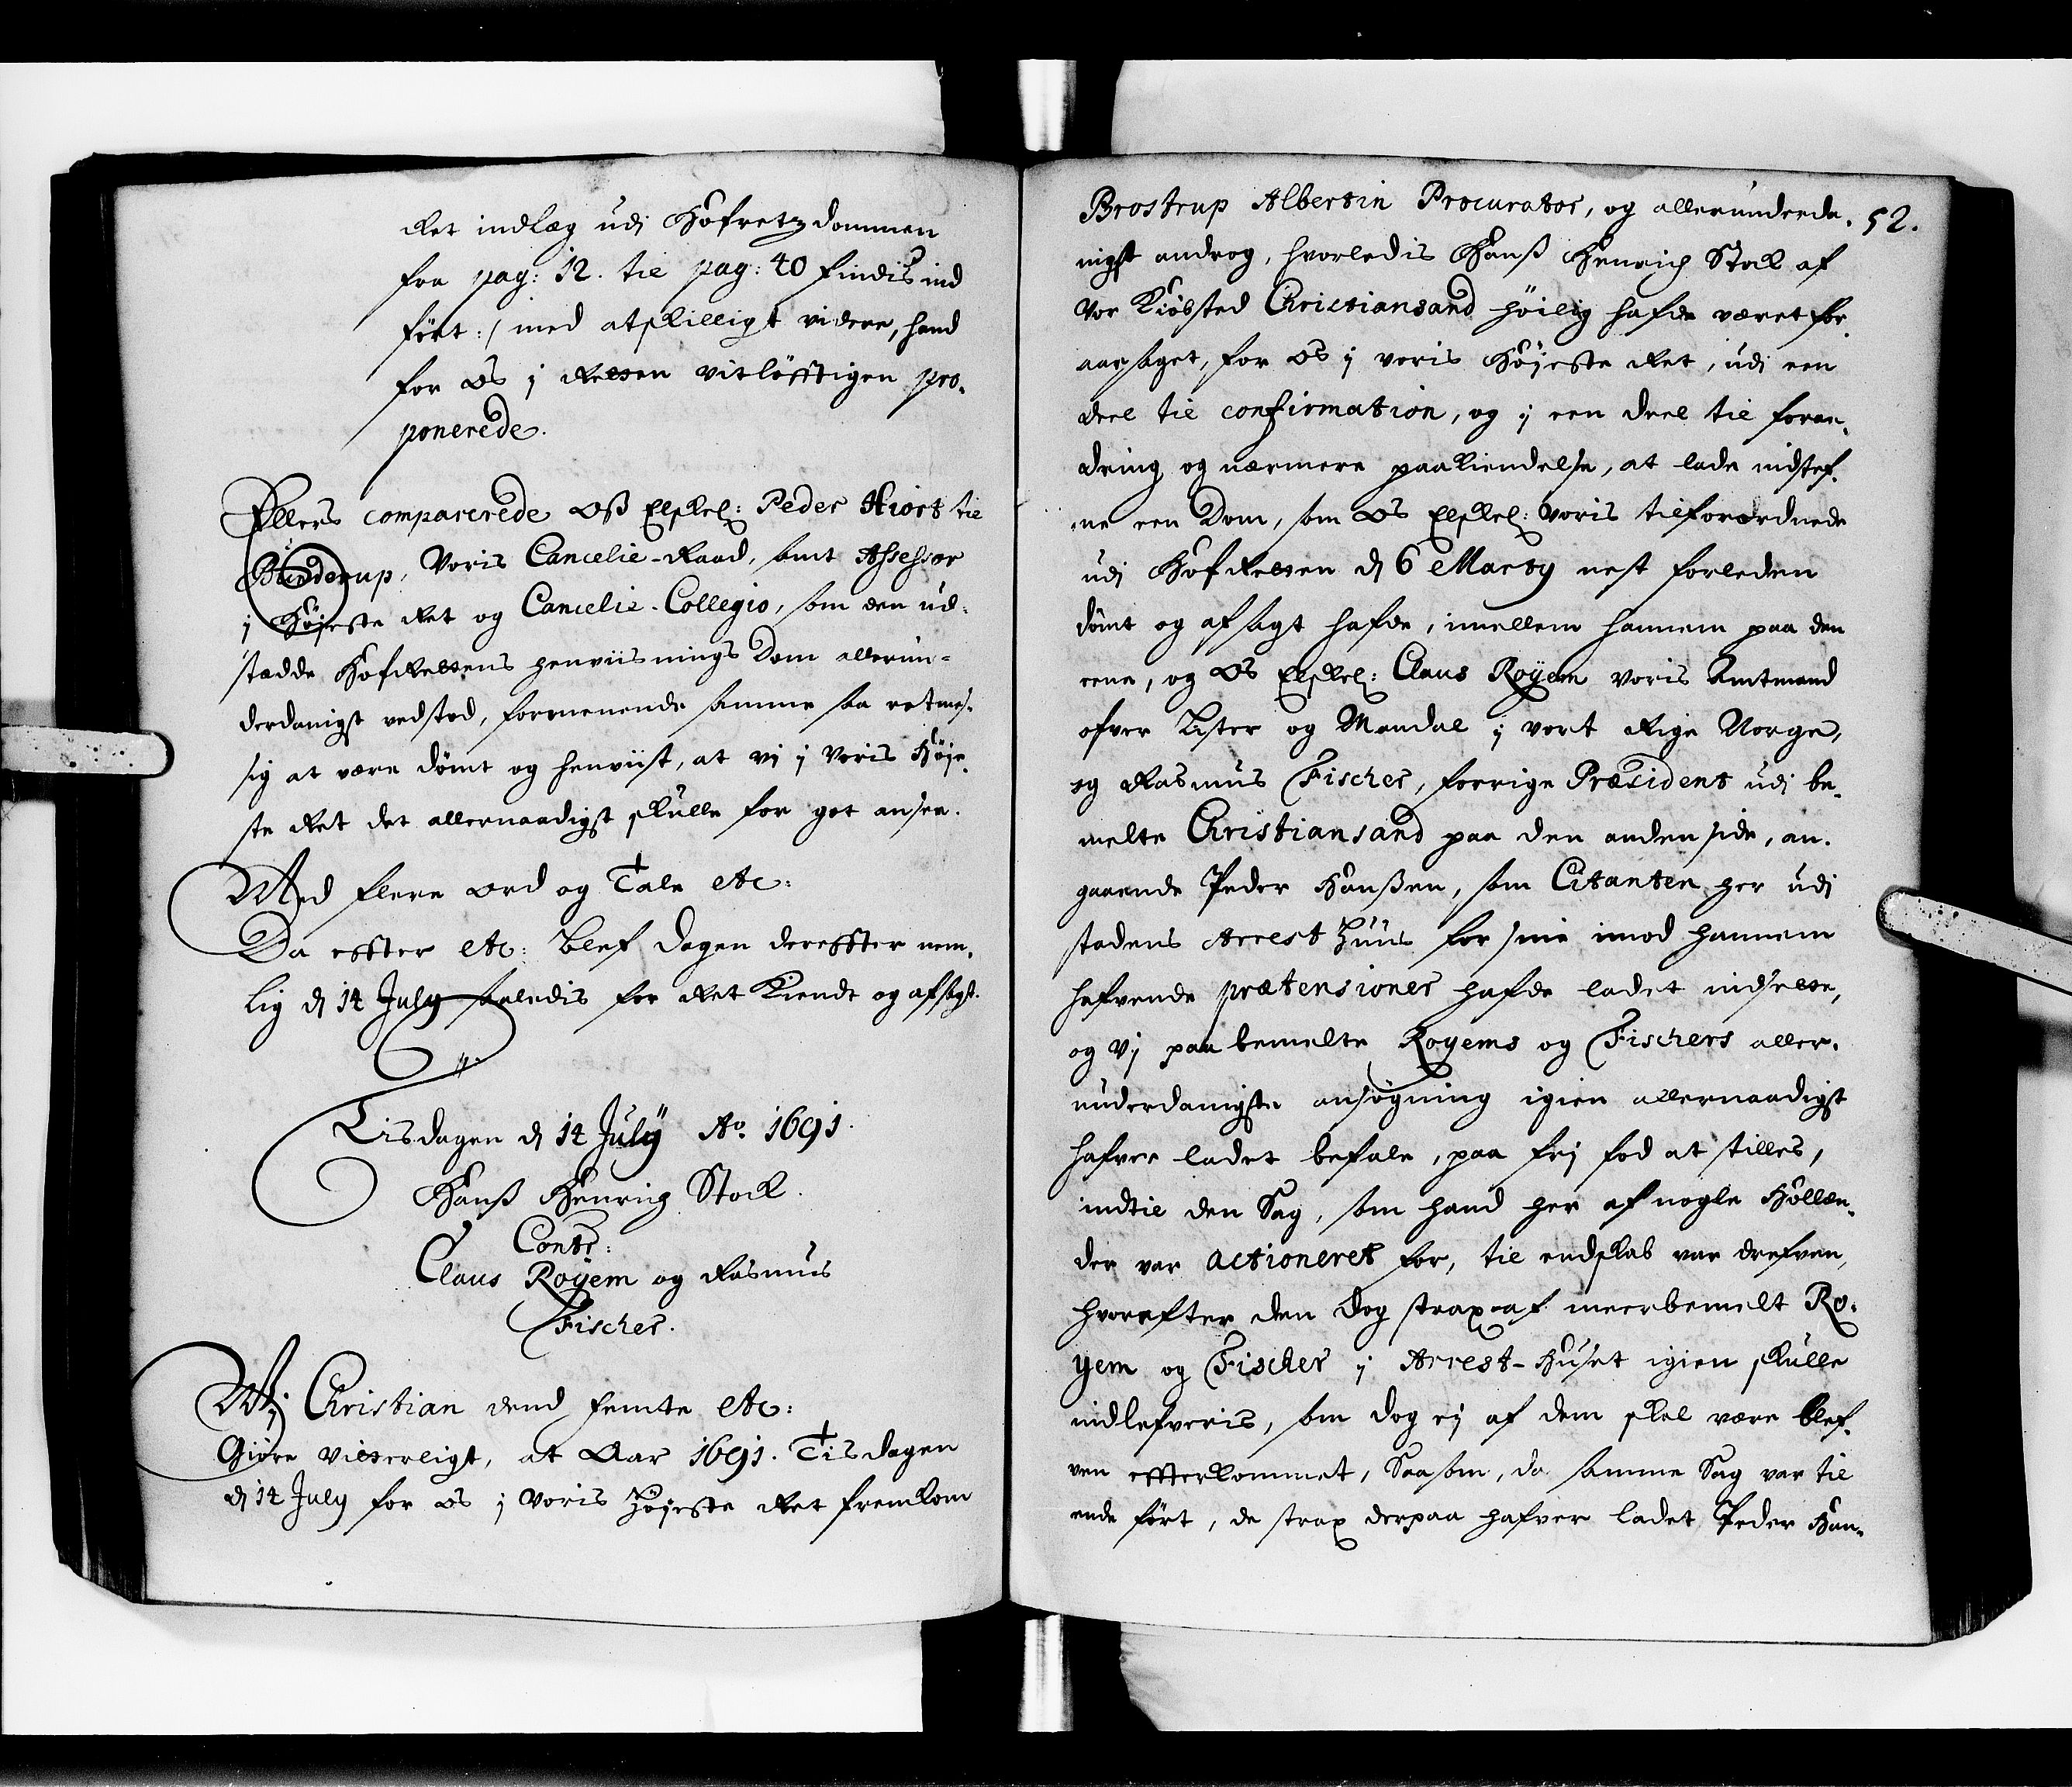 Ret indlæg udj Hofretz dommen
fra pag: 12. til pag: 40 findis ind
ført :/ med atskilligt videre, hand
for os j Retten vitløfftigen pro-
ponerede.
Ellers comparerede Oß Elskel: Peder Hiort til
Bunderup, Voris Cancelie-Raad, samt Assessor
j Højeste Ret og Cancelie-Collegio, som den ud-
stædde HofRettens henviisnings Dom allerun-
derdanigst vedstod, formenende samme saa retmes-
sig at være dømt og henviist, at vj j Voris Høje-
ste Ret det allernaadigst skulle for got ansee.
Med flere Ord og Tale etc:
Da effter etc: Blef dagen dereffter nem-
lig dj 14 July saaledis for Ret Kiendt og afsagt.
Tisdagen dj 14 Julÿ Ao. 1691.
Hanß Henrich Stock.
Contr:
Claus Roÿem og Rasmus
Fischer.
Wj Christian dend femte etc:
Giøre Vitterligt, at Aar 1691. Tisdagen
dj 14 July for os j Voris Højeste Ret fremkom
52.
Brostrup Albertin Procurator, og allerunderda-
nigst androg, hvorledis Hanß Henrich Stock af
Vor Kiøbsted Christiansand høilig hafde været for
aarsaget, for Os j voris Højeste Ret, udj een
deel til confirmation, og j een deel til foran-
dring og nærmere paakiendelse, at lade indstef-
ne een Dom, som Os Elskel: Voris tilforordnede
udj HofRetten dj 6 Marty nest forleden
dømt og afsagt hafde, imellem hannem paa den
eene, og Os Elskel: Claus Roÿem voris Amtmand
ofver Lister og Mandal j vort Rige Norge,
og Rasmus Fischer, forrige Præsident udj be-
melte Christiansand paa den anden side, an-
gaaende Peder Hanßen, som Citanten her udj
stadens Arrest Huus for sine imod hannem
hafvende prætensioner hafde ladet indsette,
og Vj paa bemelte Royems og Fischers aller-
underdanigste ansøgning igien allernaadigst
hafver ladet befale, paa frj fod at stilles,
indtil den Sag, som hand her af nogle Hollæn-
der var actioneret for, til endskab var drefven,
hvorefter den dog strax af meerbemelt Ro-
yem og Fischer j Arrest-Huset igien skulle
indlefveris, som dog ej af dem skal være blef-
ven effterkommet, Saasom, da samme Sag var til
ende ført, de strax derpaa hafver ladet Peder Han-